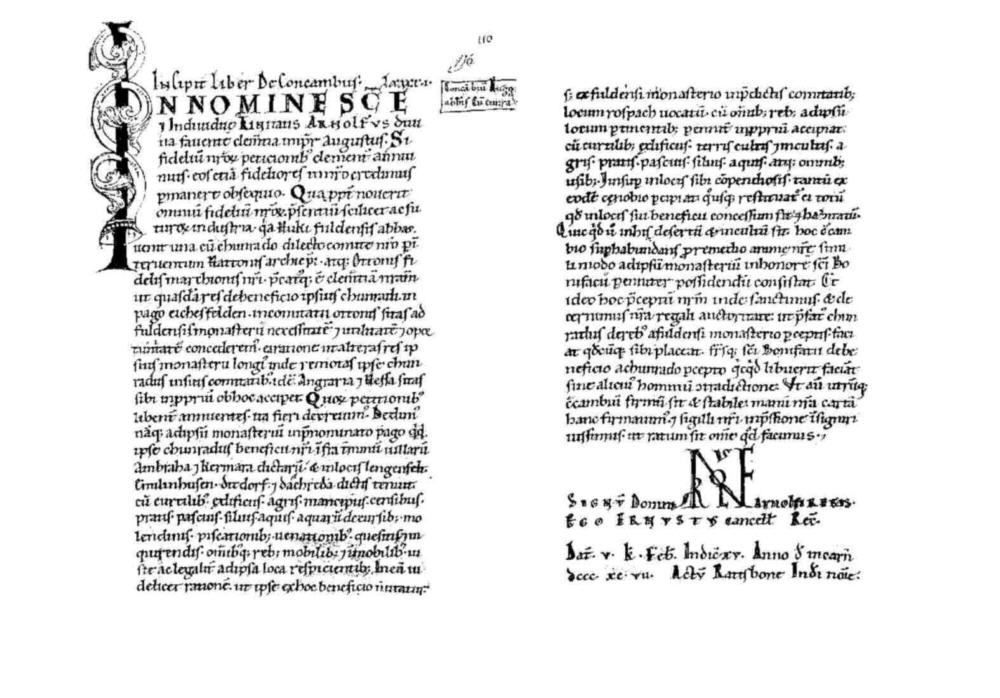 110
116
Incipit Liber De Concambus.
IN NOMINE SCE
⁊ Individue trinitatis ARNOLFVS divi
na favente clementia impr̄ Augustus. Si
fidelium nr̄oꝝ peticionib' clementer annu
imus. eos etiā fideliores in nr̄o credimus
pmanere obsequio. Quapp̄t noverit
omnium fidelium nr̄oꝝ. p̄sentiū scilicet ac fu
turoꝝ industria. q̄a Huki fuldensis abbas.
venit una cū chunrado dilecto comite nr̄o p̄
terventum Hattonis archiepi. atq; Ottonis fi
delis marchionis nr̄i. p̄catq; ē clementiā nr̄am
ut quasdā res de beneficio ipsius chunradi. in
pago eichesfelden. in comitatu ottonis sitas ad
fuldensis monasterii necessitatē ⁊ utilitatē ⁊ opor
tunitatē concederem. ea ratione ut alteras res ip
sius monasterii longi inde remotas ipse chun
radus in suis comitatib' idē. Angraria ⁊ Hessa sitas
sibi in ppriū ob hoc acciperet. Quoꝝ petitionib'
libent annuentes. ita fieri decrevim'. Dedim'
nāq; ad ipsū monasteriū in p̄nominato pago qd̄
ipse chunradus beneficii nr̄i infra t̄minū villarū
Ambraha ⁊ kermara dictarū. & in locis lengenfelt.
Emilinhusen. dītdorf. ⁊ dachreda dictis tenuit.
cū curtilib'. ędificiis. agris. mancipiis. censibus.
pratis. pascuis. silvis. aquis. aquarū decursib; mo
lendinis. piscationib; venationib'. quesitis ⁊ in
quirendis. om̄ibq; reb; mobilib; ⁊ īmobilib'. iu
ste ac legalit ad ipsa loca respicientib;. In eā vi
delicet rationē. ut ipse ex hoc beneficio
s; ex fuldensi monasterio in p̄dictis comitatib;
locum rospach vocatū. cū om̄ib; reb; ad ipsū
locum ptinentib; pennit in ppriū accipiat.
cū curtilib; ędificiis. terris cultis ⁊ incultis. a
gris. pratis. pascuis. silvis. aquis. atq; omnib;
usib; Insup in locis sibi cōpendiosis. tantū ex
eodē cenobio pcipiat. restituat ei totū
qd̄ in locis sui beneficii concessum
Quicqd̄ ū in his desertū & incultū sit. hoc
bio suphabundans pro remedio anime nr̄e. simi
li modo ad ipsū monasteriū in honore sc̄i Bo
nifacii pennit possidendū consistat. Et
ideo hoc p̄ceptū nr̄m inde sanctimus. & de
cernimus nr̄a regali auctoritate. ut p̄fat' chun
radus de reb' a fuldensi monasterio pceptis. faci
at qd̄cūq; sibi placeat. fr̄sq; sc̄i Bonifatii de be
neficio a chunrado pcepto. q̄cqd̄ libuerit faciāt
sine alicui' hominū cōtradictione. Ut aū utrūq;
c̄cambiū firmū sit & stabile. manu nr̄a cartā
hanc firmavim' ⁊ sigilli nr̄i inp̄ssione īsigniri
iussimus. ut ratum sit om̄e qd̄ facimus.
SIGNV̄ Domni Arnolfi REGIS.
EGO ERNVSTVS cancell' Rec̄.
Dat̄. v. k. Feb. Indic̄ xv. Anno d̄ incarn̄
dccc. xc. vii. Actū Ratisbone In d̄i noīe.